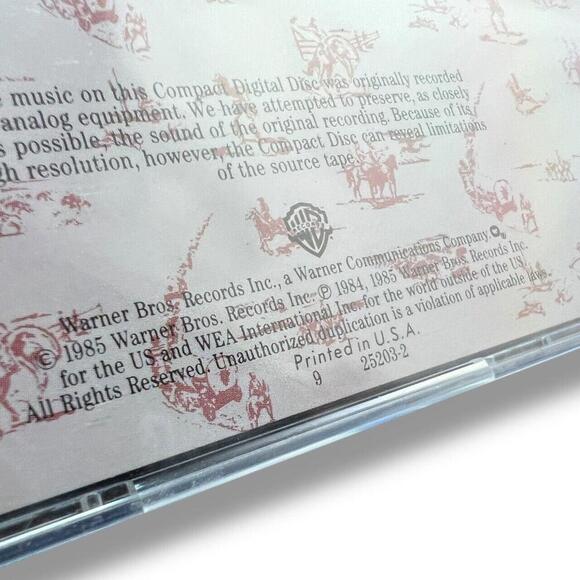 music on this Compact Digital Disc was originally recorded
analog equipment. We have attempted to preserve, as closely
s possible, the sound of the original recording. Because of its
gh resolution, however, the Compact Disc can reveal limitations
of the source tape.
Warner Bros. Records Inc., a Warner Communications Company
© 1985 Warner Bros. Records Inc. ℗ 1984, 1985 Warner Bros. Records Inc.
for the US and WEA International Inc. for the world outside of the US.
All Rights Reserved. Unauthorized duplication is a violation of applicable laws.
Printed in U.S.A.
9 25203-2